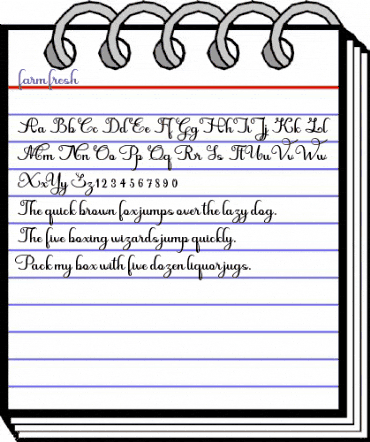 farmfresh
Aa Bb Cc Dd Ee Ff Gg Hh Ii Jj Kk Ll
Mm Nn Oo Pp Qq Rr Ss Tt Uu Vv Ww
Xx Yy Zz 1 2 3 4 5 6 7 8 9 0
The quick brown fox jumps over the lazy dog.
The five boxing wizards jump quickly.
Pack my box with five dozen liquor jugs.